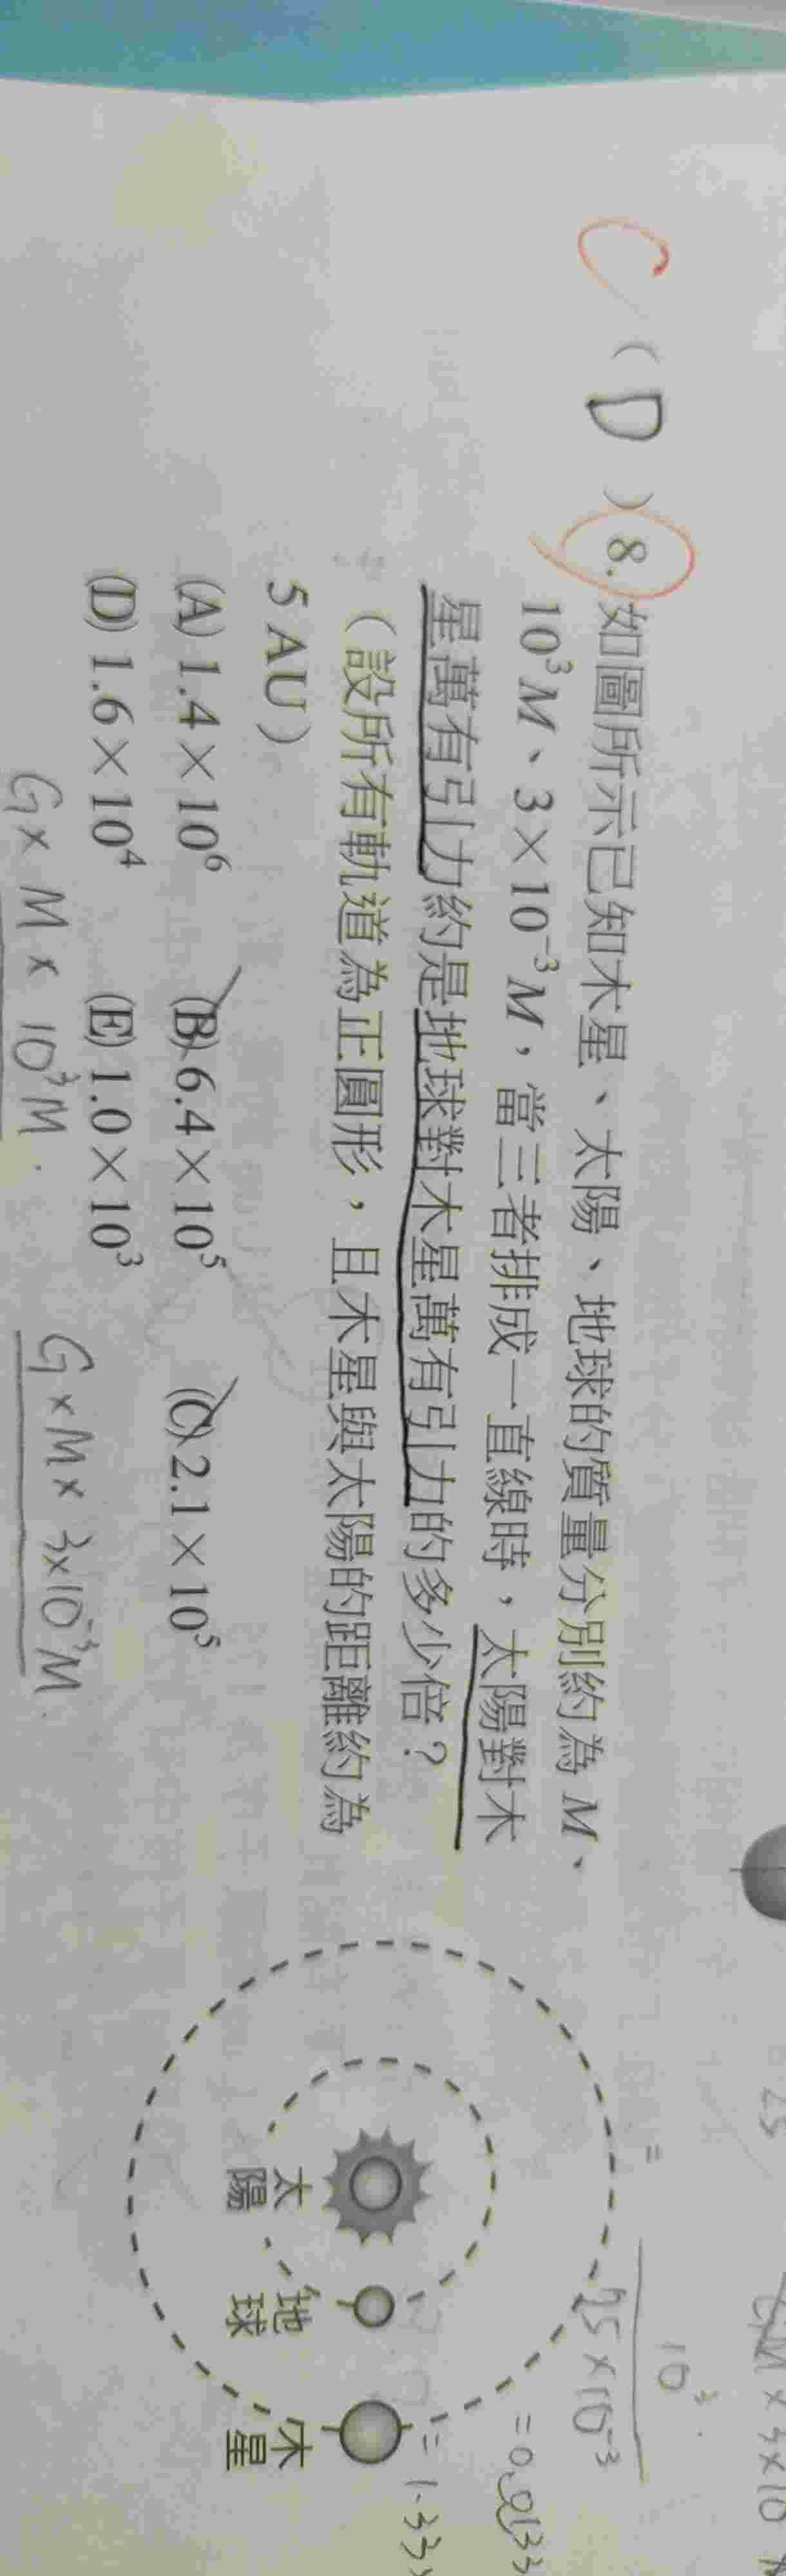 C ( D ) 8. 如圖所示已知木星、太陽、地球的質量分別約為 M、
10³M、3×10⁻³M，當三者排成一直線時，太陽對木
星萬有引力約是地球對木星萬有引力的多少倍？
（設所有軌道為正圓形，且木星與太陽的距離約為
5 AU）
(A) 1.4×10⁶ (B) 6.4×10⁵ (C) 2.1×10⁵
(D) 1.6×10⁴ (E) 1.0×10³
G×M×10³M
G×M×3×10⁻³M
太陽
地球
木星
25
=
10³
75×10⁻³
=0.0133
=1.33